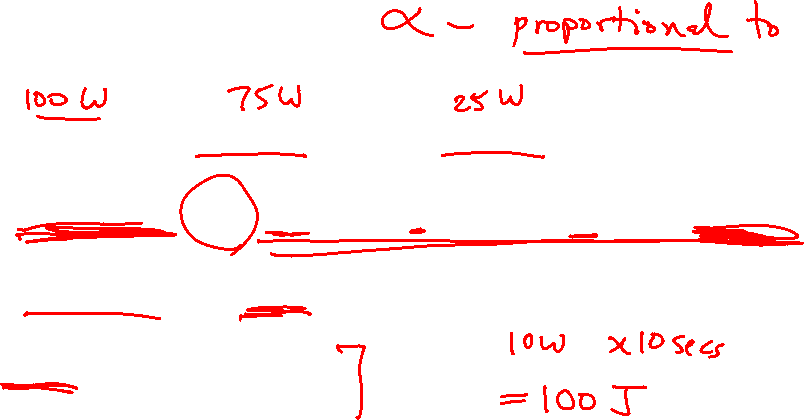 ∝ - proportional to
100W 75W 25W
10W x10secs
= 100 J